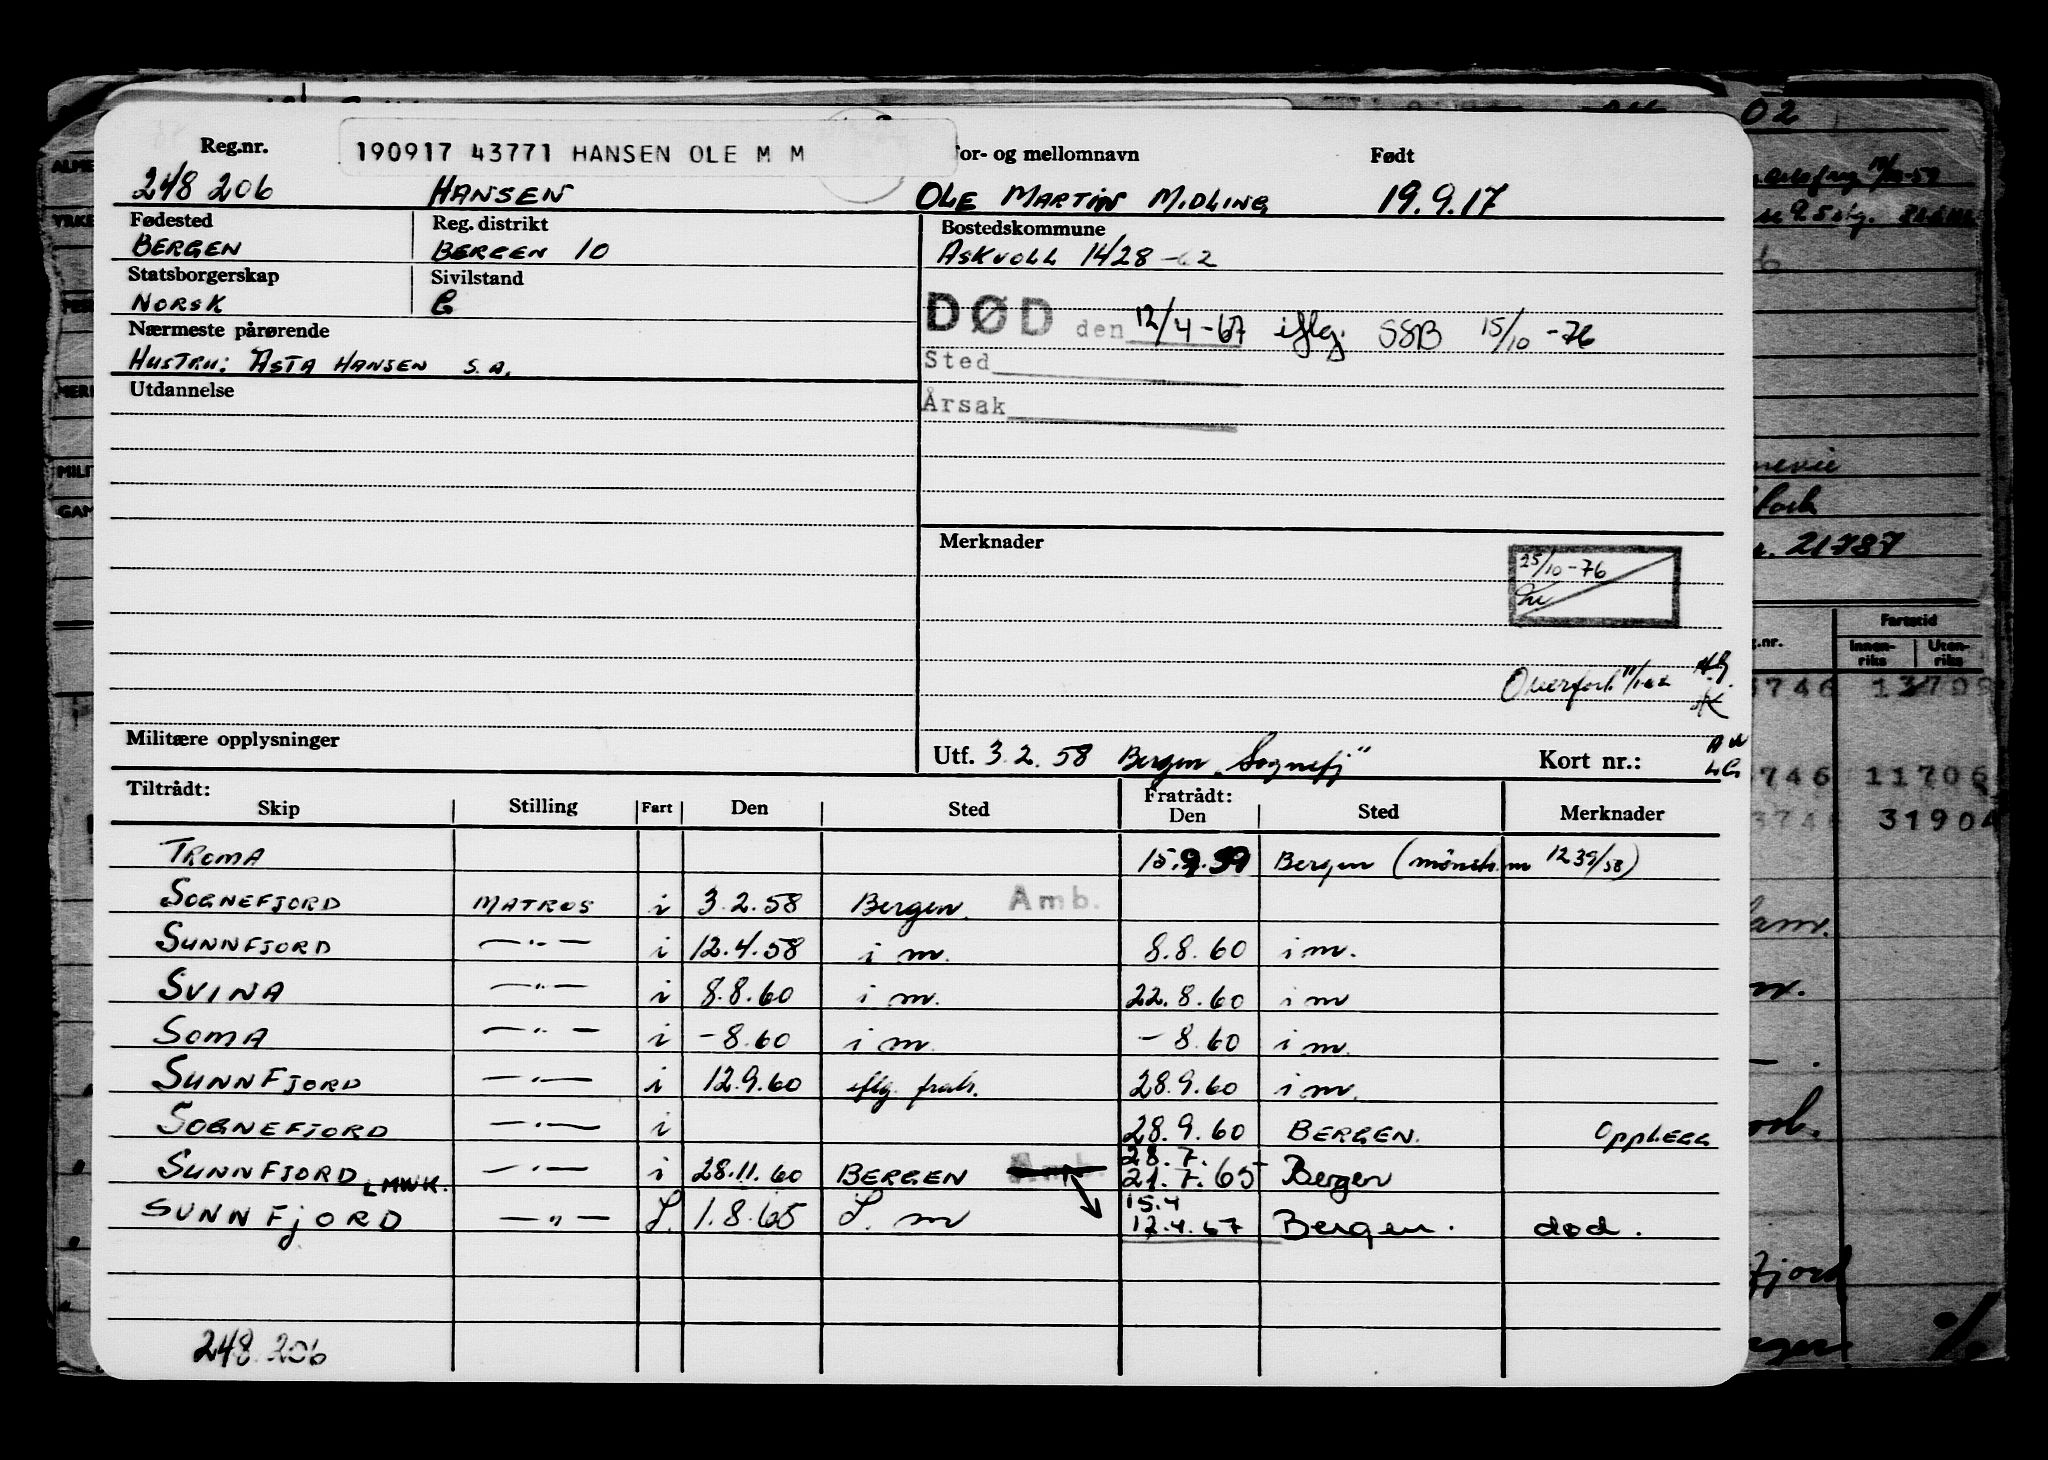 190917 43771 HANSEN OLE M M
Reg.nr. or- og mellomnavn Født
248 206 HANSEN OLE MARTIN MIDLING 19.9.17
Fødested Reg. distrikt Bostedskommune
BERGEN BERGEN 10 ASKVOLL 1428
Statsborgerskap Sivilstand
NORSK G
DØD den 12/4-67 iflg. SSB 15/10-76
Nærmeste pårørende
HUSTRU: ASTA HANSEN S.A.
Sted
Utdannelse
Årsak
Merknader
25/10-76
Militære opplysninger
Utf. 3.2.58 Bergen "Sognefj" Kort nr.:
Tiltrådt: Fratrådt:
Skip Stilling Fart Den Sted Den Sted Merknader
TROMA 15.9.59 Bergen (mønstr. m 1239/58)
SOGNEFJORD MATROS i 3.2.58 Bergen. Amb.
SUNNFJORD —"— i 12.4.58 i m. 8.8.60 i m.
SVINA —"— i 8.8.60 i m. 22.8.60 i m
SOMA —"— i -8.60 i m. -8.60 i m.
SUNNFJORD —"— i 12.9.60 iflg. fratr. 28.9.60 i m.
SOGNEFJORD —"— i 28.9.60 BERGEN. OPPLEGG
SUNNFJORD LMWK. —"— i 28.11.60 BERGEN Amb. 28.7. 21.7.65 Bergen
SUNNFJORD —"— I. 1.8.65 I. m 15.4 12.4.67 Bergen. død.
248.206
02
21787
Fartstid
g.nr. Innen-riks Uten-riks
3746 13709
3746 11706
3746 31904
fjord